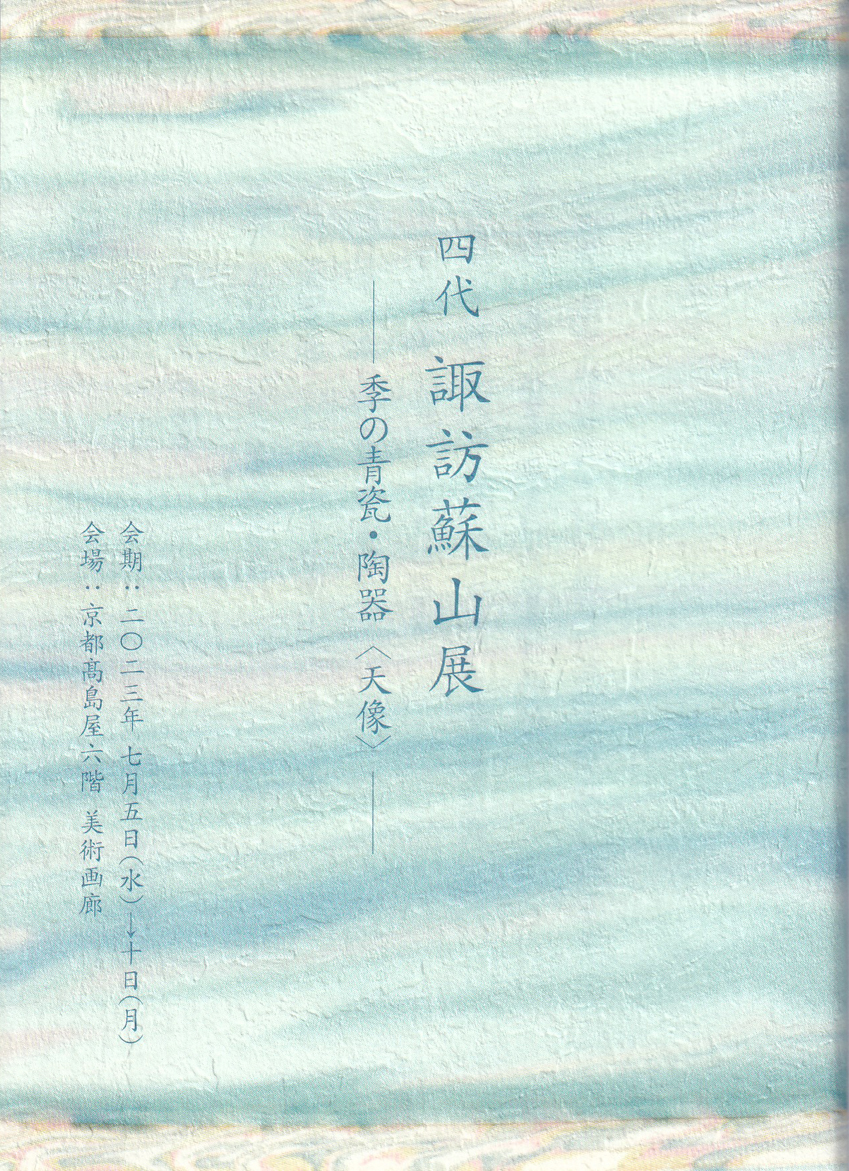 四代 諏訪蘇山展
――季の青瓷・陶器〈天像〉――
会期：二〇二三年 七月五日（水）→十日（月）
会場：京都髙島屋六階 美術画廊